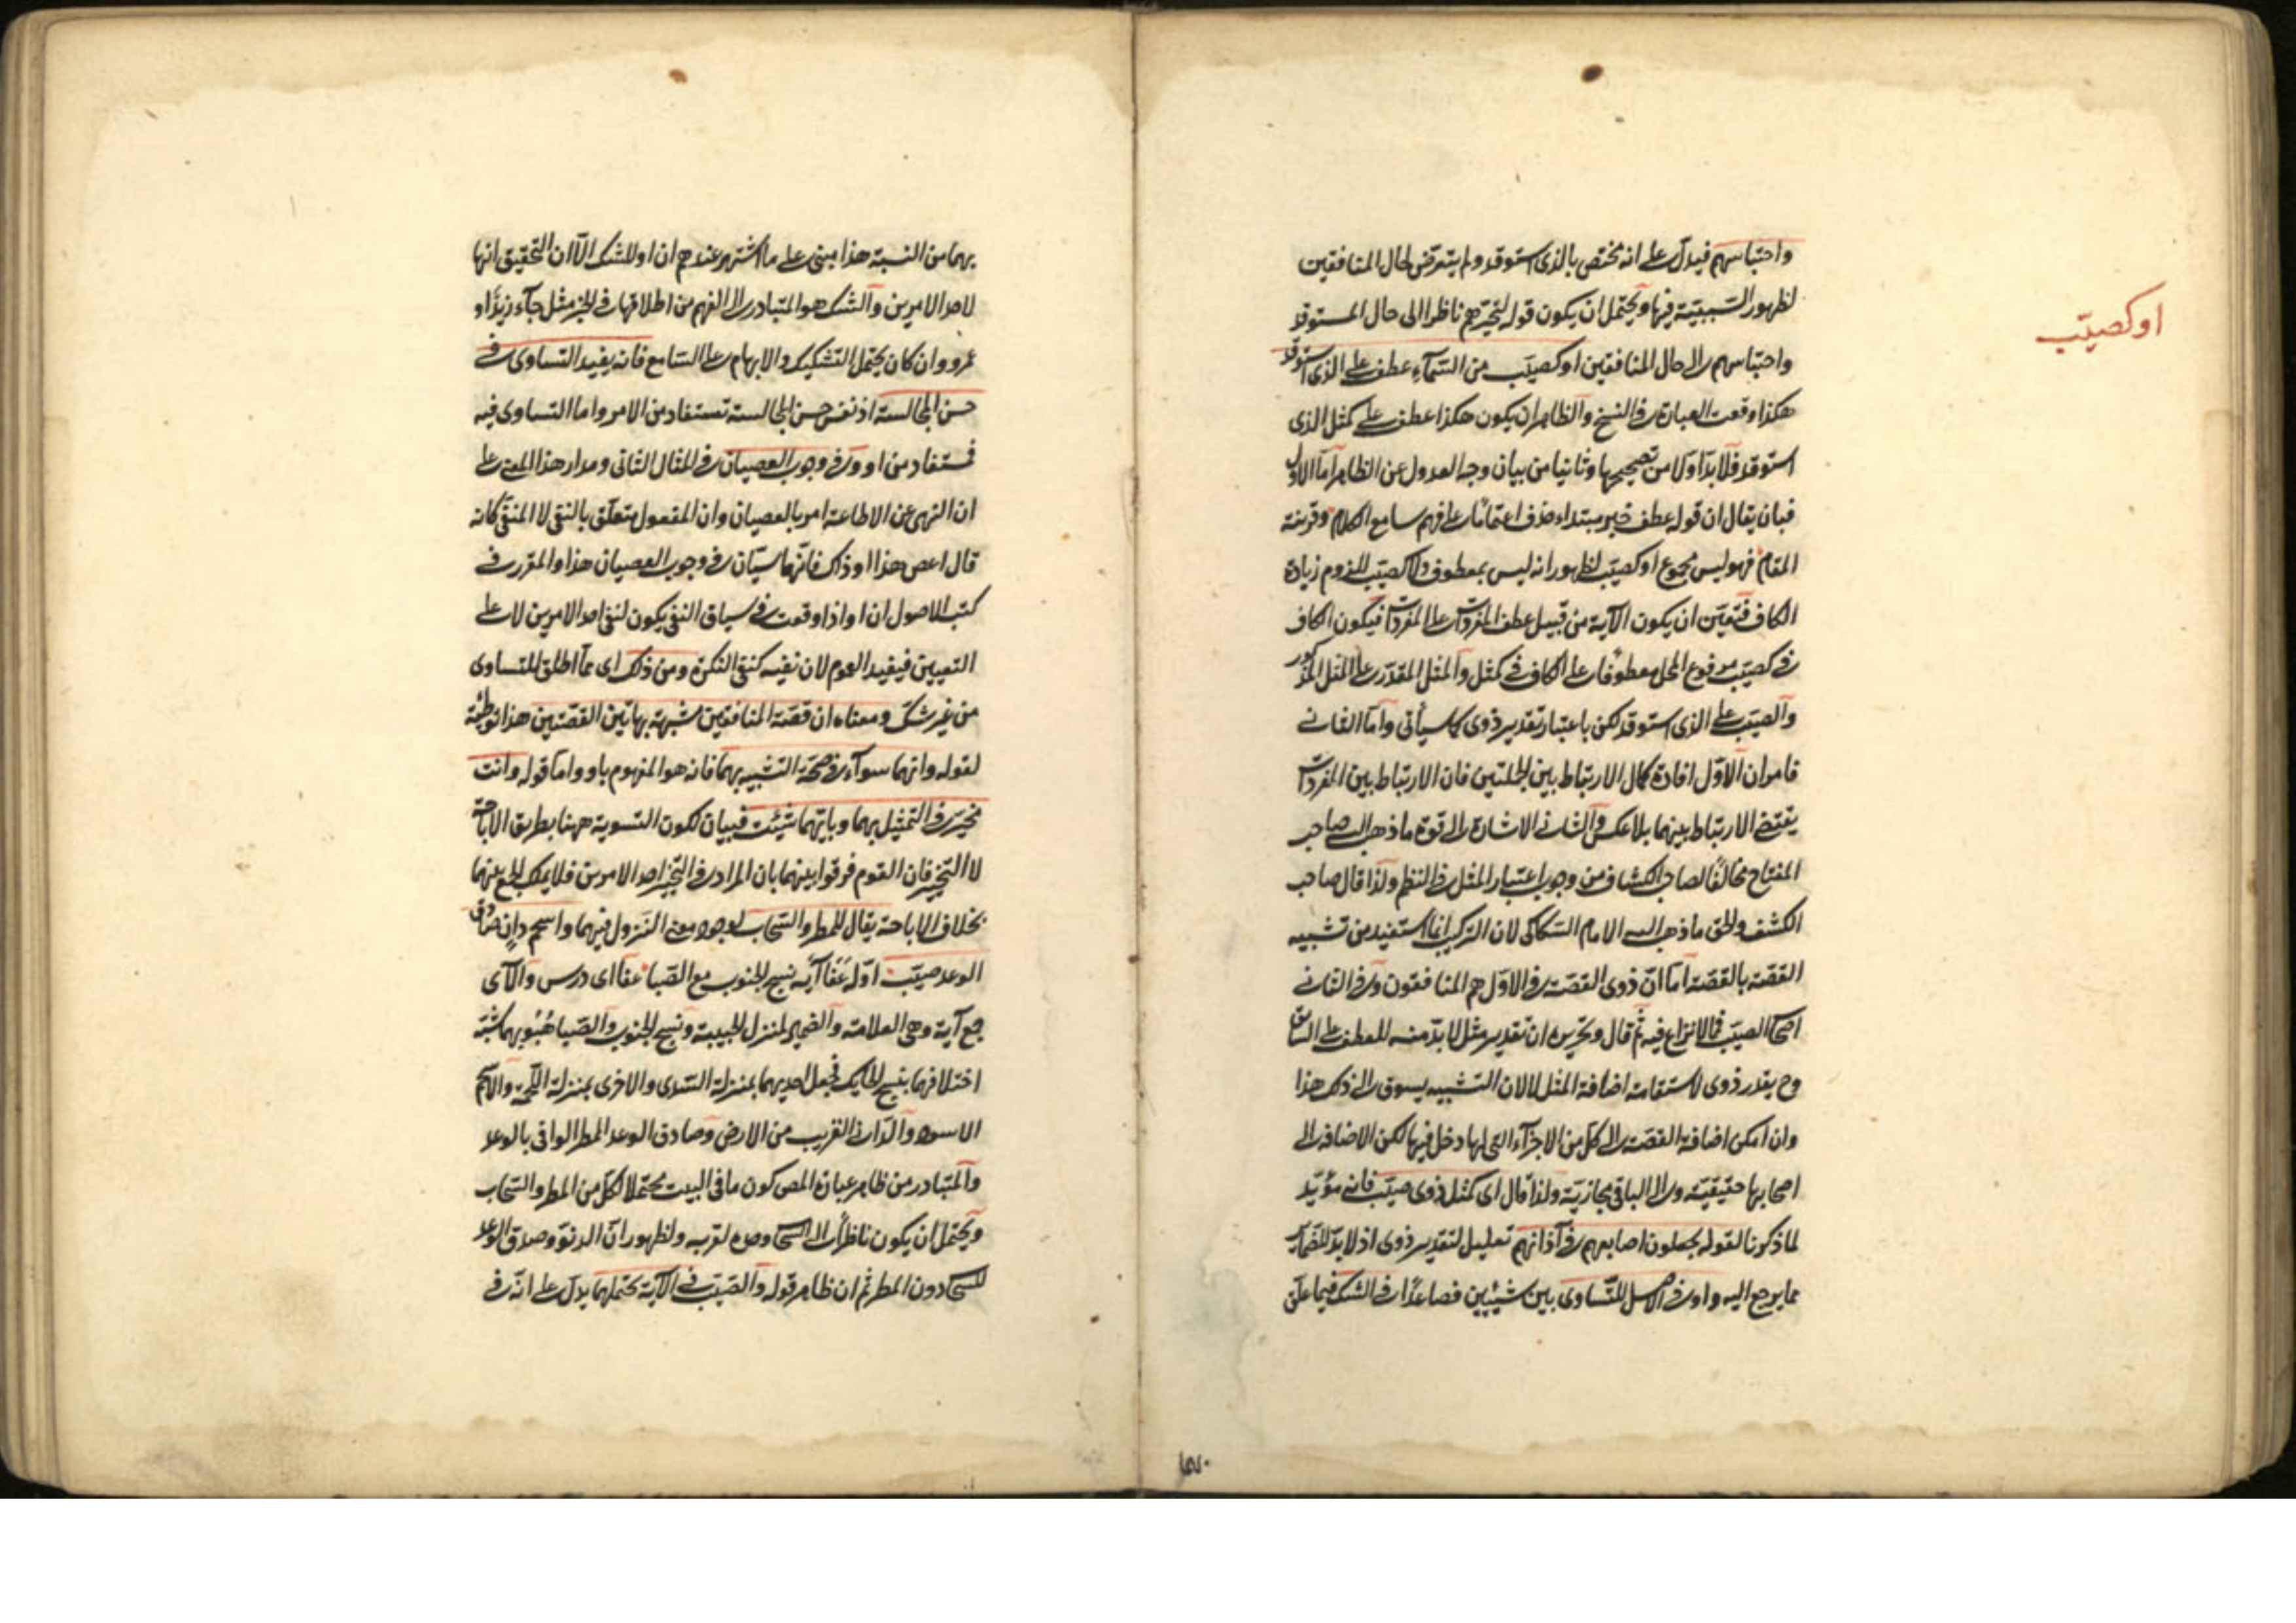 او كصيّب
واحتباسهم فيدل على انه مختص بالذى استوقد ولم يتعرّض لحال المنافقين
لظهور السّببيّة فيها ويحتمل ان يكون قوله لتحيّرهم ناظرا الى حال المستوقد
واحتباسهم الى حال المنافقين او كصيّب من السّمآء عطف على الذى استوقد
هكذا وقعت العبارة فى النسخ والظاهر ان يكون هكذا عطف على كمثل الذى
استوقد فلا بدّ اوّلا من تصحيحها وثانيا من بيان وجه العدول عن الظاهر امّا الاول
فبان يقال ان قوله عطف خبر مبتداء حذف اعتمادًا على فهم سامع الكلام وقرينة
المقام فهو ليس مجموع او كصيّب لظهور انه ليس بمعطوف ولا كصيّب للزوم زيادة
الكاف فتعيّن ان يكون الآية من قبيل عطف المفردات على المفردات فيكون الكاف
فى كصيّب مرفوع المحل معطوفا على الكاف فى كمثل والمثل المقدّر على المثل المذكور
والصيّب على الذى استوقد لكن باعتبار تقدير ذوى كما سيأتى وامّا الثانى
فامران الاوّل افادة كمال الارتباط بين الجملتين فان الارتباط بين المفردات
يقتضى الارتباط بينهما بلا عكس والثانى الاشارة الى قوة ما ذهب اليه صاحب
المفتاح مخالفًا لصاحب الكشاف من وجوب اعتبار المثل فى النظم ولذا قال صاحب
الكشف والحق ما ذهب اليه الامام السّكاكى لان التركيب انما استفيد من تشبيه
القصّة بالقصّة امّا انّ ذوى القصّة فى الاوّل هم المنافقون وفى الثانى
اصحاب الصيّب فمما لا نزاع فيه ثم قال وتحريره ان تقدير مثل لا بدّ منه للعطف على السابق
وح يقدر ذوى لاستقامة اضافة المثل لا لان التشبيه يسوق الى ذلك هذا
وان امكن اضافة القصّة الى كل من الاجزآء التى لها دخل فيها لكن الاضافة الى
اصحابها حقيقيّة والى الباقى مجازيّة ولذا قال اى كمثل ذوى صيّب فانه مؤيّد
لما ذكرنا لقوله يجعلون اصابعهم فى آذانهم تعليل لتقدير ذوى اذ لا بدّ للضمائر
مما يرجع اليه واو فى الاصل للتّساوى بين شيئين فصاعدًا فى الشك فيما علّق
بهما من النسبة هذا مبنى على ما اشتهر عندهم ان او للشك الّا ان التحقيق انها
لاحد الامرين والشك هو المتبادر الى الفهم من اطلاقها فى الخبر مثل جآء زيدٌ او
عمرو وان كان يحتمل التشكيك والابهام على السّامع فانه يفيد التساوى فى
حسن المجالسة اذ نفس حسن المجالسة تستفاد من الامر واما التساوى فيه
فمستفاد من او وفى وجوب العصيان فى المثال الثانى ومدار هذا المعنى على
ان النهى عن الاطاعة امر بالعصيان وان المفعول متعلّق بالنفى لا المنفى كانه
قال اعص هذا او ذاك فانّهما سيّان فى وجوب العصيان هذا والمقرر فى
كتب الاصول ان او اذا وقعت فى سياق النفى يكون لنفى احد الامرين لا على
التعيين فيفيد العموم لان نفيه كنفى النكرة ومن ذلك اى مما اطلق للتساوى
من غير شكّ ومعناه ان قصّة المنافقين مشبهة بهاتين القصّتين هذا توطئة
لقوله وانهما سوآء فى صحّة التشبيه بهما فانه هو المفهوم باو واما قوله وانت
مخيّر فى التمثيل بهما وبايّهما شئت فبيان لكون التسوية ههنا بطريق الاباحة
لا التخيير فان القوم فرقوا بينهما بان المراد فى التخيير احد الامرين فلا يمكن الجمع بينهما
بخلاف الاباحة يقال للمطر والسّحاب لوجود معنى النّزول فيهما واسحم دانٍ صادق
الوعد صيّب اوّله عَفَا آيَه نسج الجنوب مع الصّبا عفا اى درس والآى
جمع آية وهى العلامة والضمير لمنزل الحبيبة ونسج الجنوب والصّبا هُبُوبهما شبّه
اختلافهما بنسج الحايك فجعل احديهما بمنزلة السّدى والاخرى بمنزلة اللّحمة والاسحم
الاسود والدّانى القريب من الارض وصادق الوعد المطر الوافى بالوعد
والمتبادر من ظاهر عبارة المص كون ما فى البيت محتملا لكل من المطر والسّحاب
ويحتمل ان يكون ناظرًا الى السحاب وحده لقربه ولظهور انّ الدنوّ وصدق الوعد
للسحاب دون المطر ثم ان ظاهر قوله والصّيّب فى الآية يحتملهما يدل على انّه فى